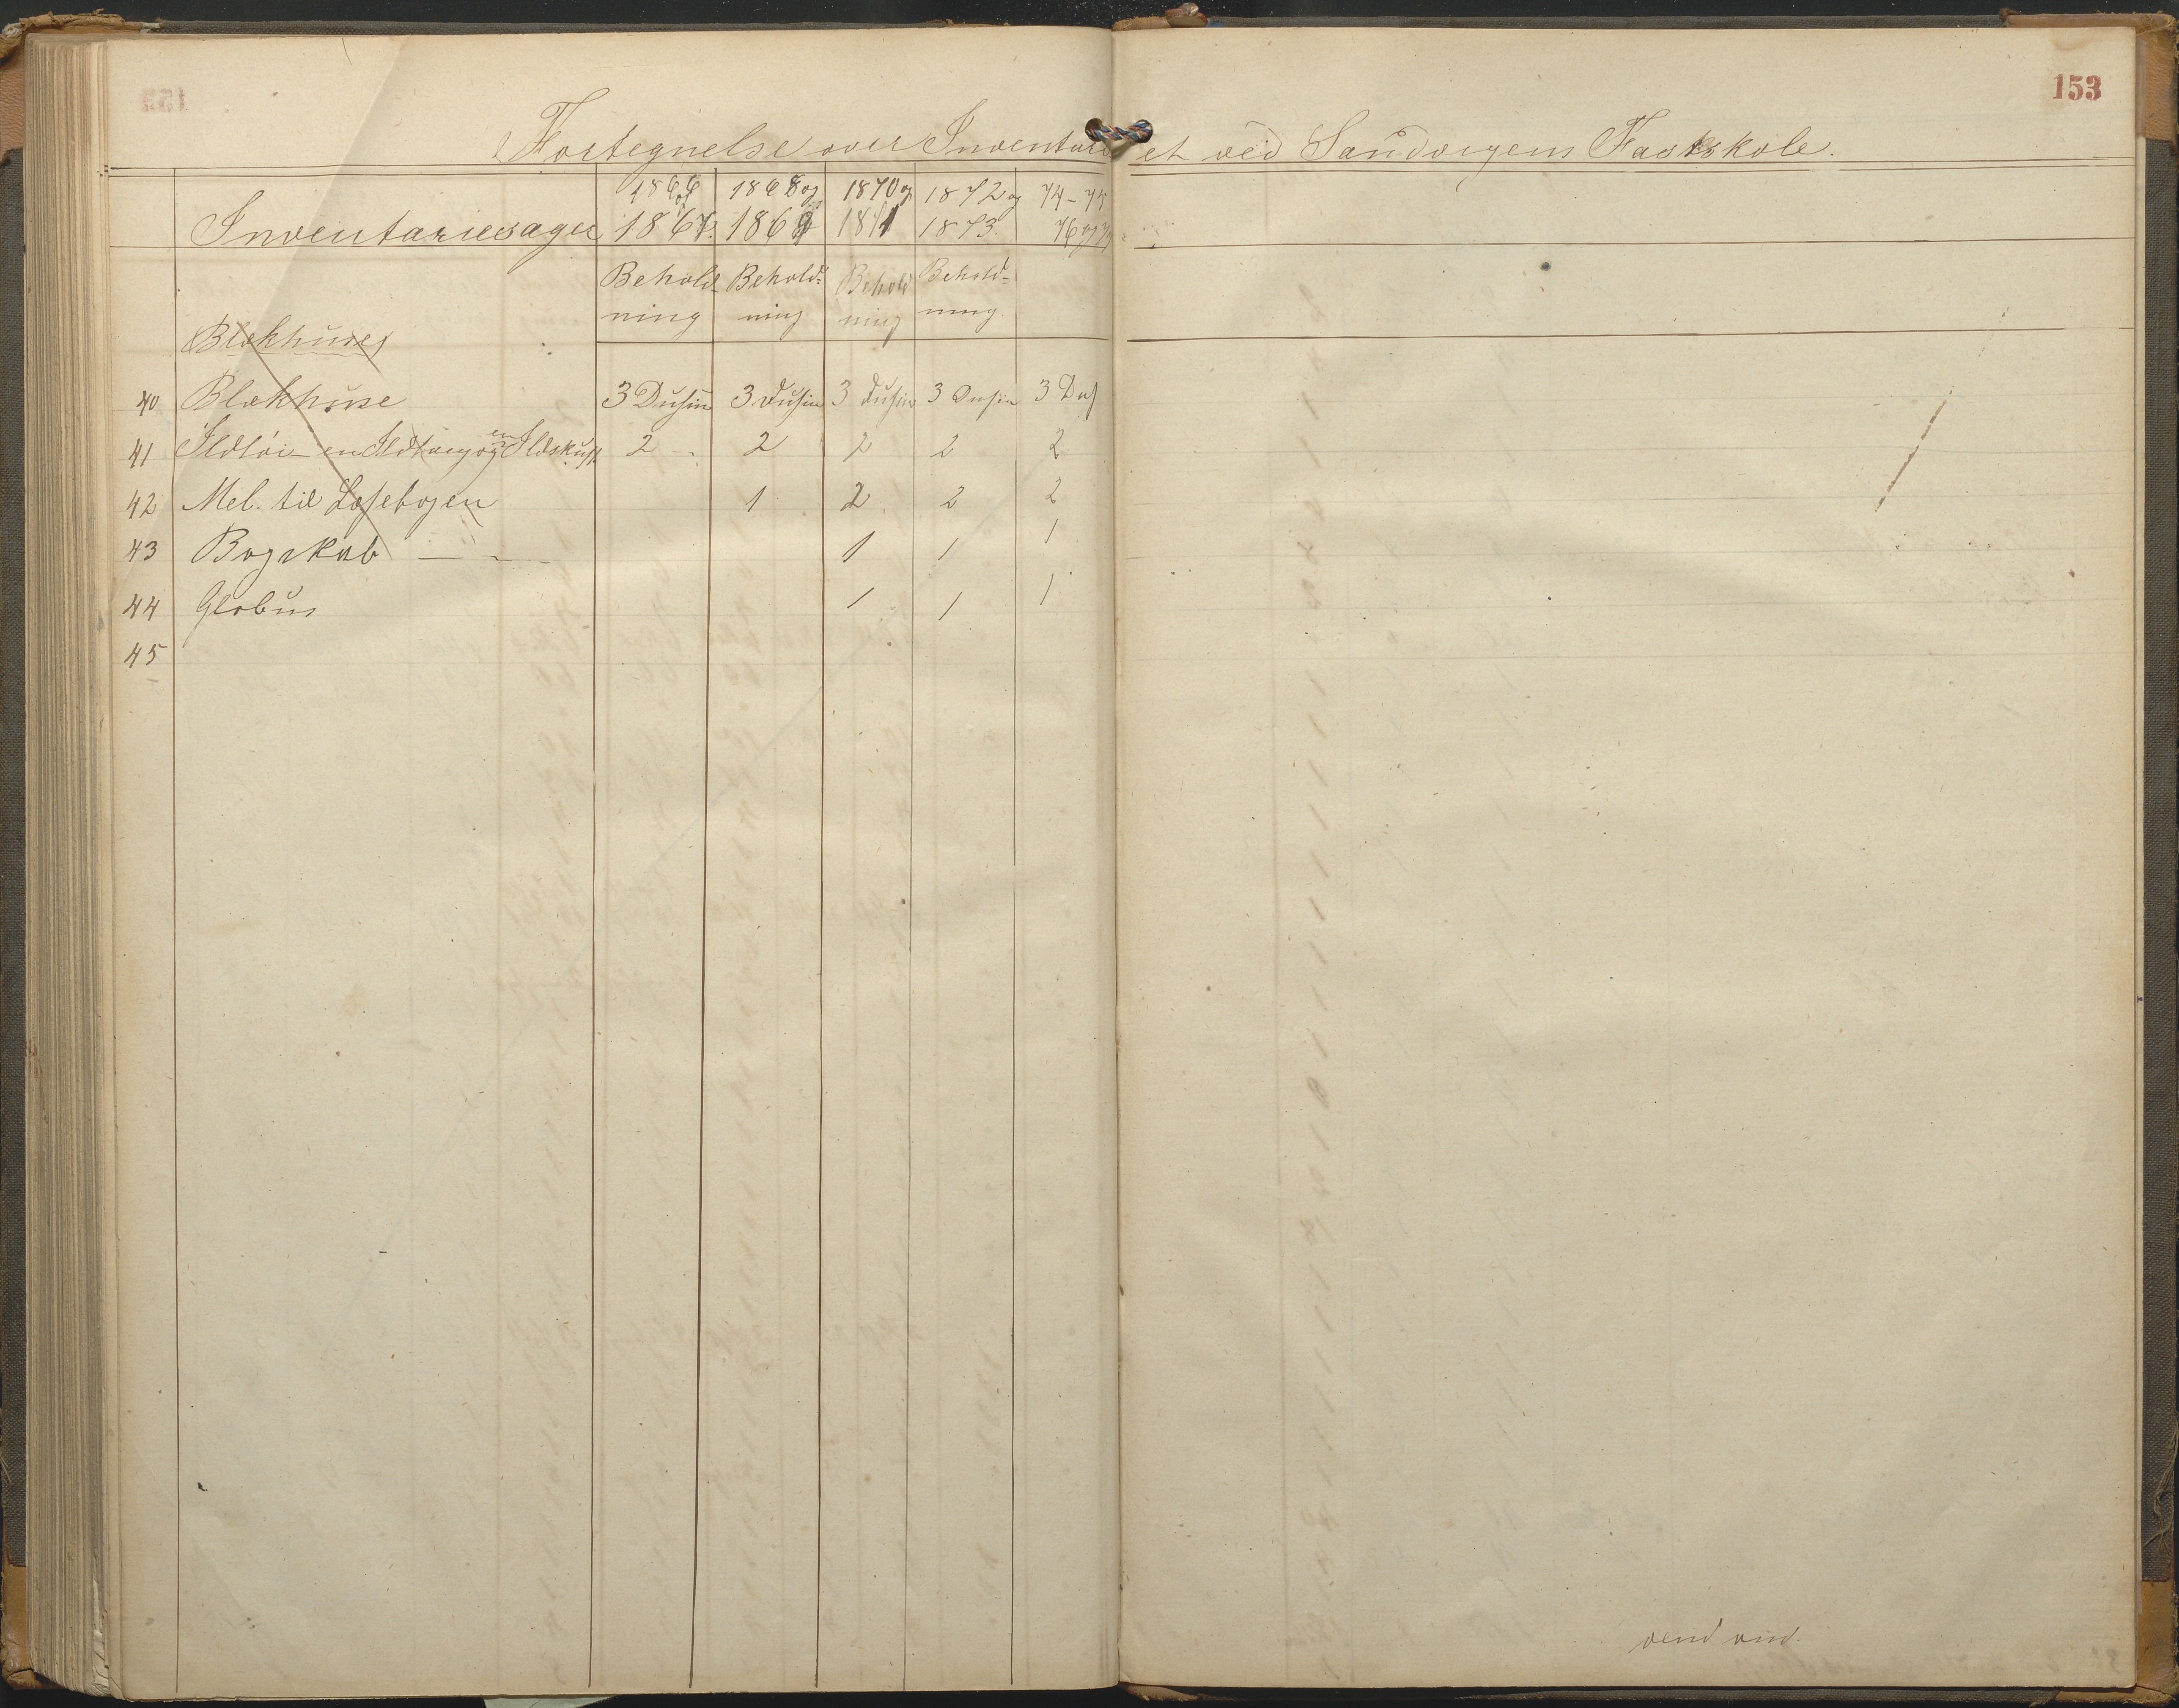 153
Fortegnelse over Inventariet ved Sandvigens Fastskole.
Inventariesager 1866 og 1867. 1868 og 1869 1870 og 1871 1872 og 1873. 74-75 76 og 77
Behold- Behold- Behold Behold-
ning ning ning ning
Blækhuses
40 Blækhuse 3 Dusin 3 Dusin 3 Dusin 3 Dusin 3 Dus
41 Ildtöi - en Ildtang og en Ildskuff 2 - 2 2 2 2
42 Mel. til Læsebogen 1 2 2 2
43 Bogskab — - 1 1 1
44 Globus 1 1 1
45
vend om.